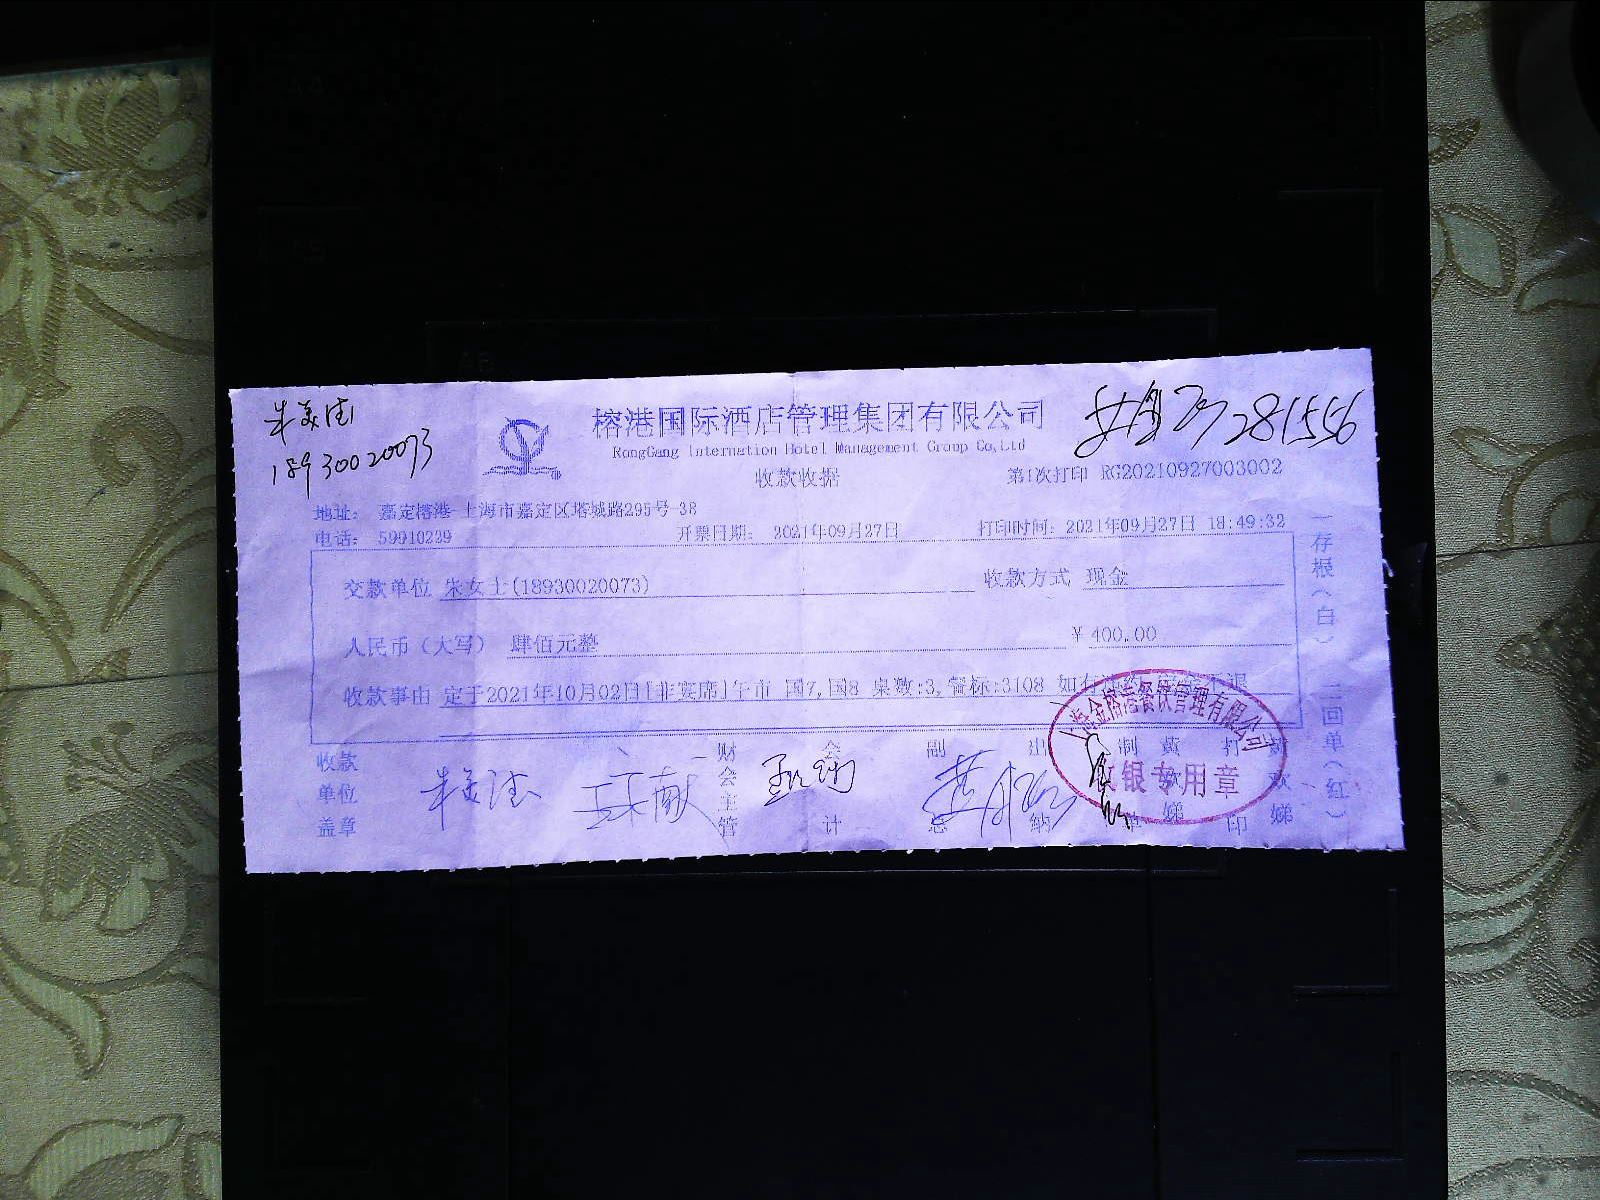 朱美洁
18930020073
榕港国际酒店管理集团有限公司
RongGang International Hotel Management Group Co,Ltd
281556
收款收据
第1次打印 RG20210927003002
地址： 嘉定榕港-上海市嘉定区塔城路295号-38
电话： 59910229
开票日期： 2021年09月27日
打印时间： 2021年09月27日 18:49:32
交款单位 朱女士(18930020073)
收款方式 现金
人民币（大写） 肆佰元整
¥ 400.00
收款事由 定于2021年10月02日[非宴席]午市 国7,国8 桌数:3,餐标:3108 如有
上海金榕港餐饮管理有限公司
收银专用章
收款单位盖章
朱美洁
财会主管
会计
副总
出纳
制单
黄欢娣
打印
黄欢娣
一存根(白) 二回单(红)